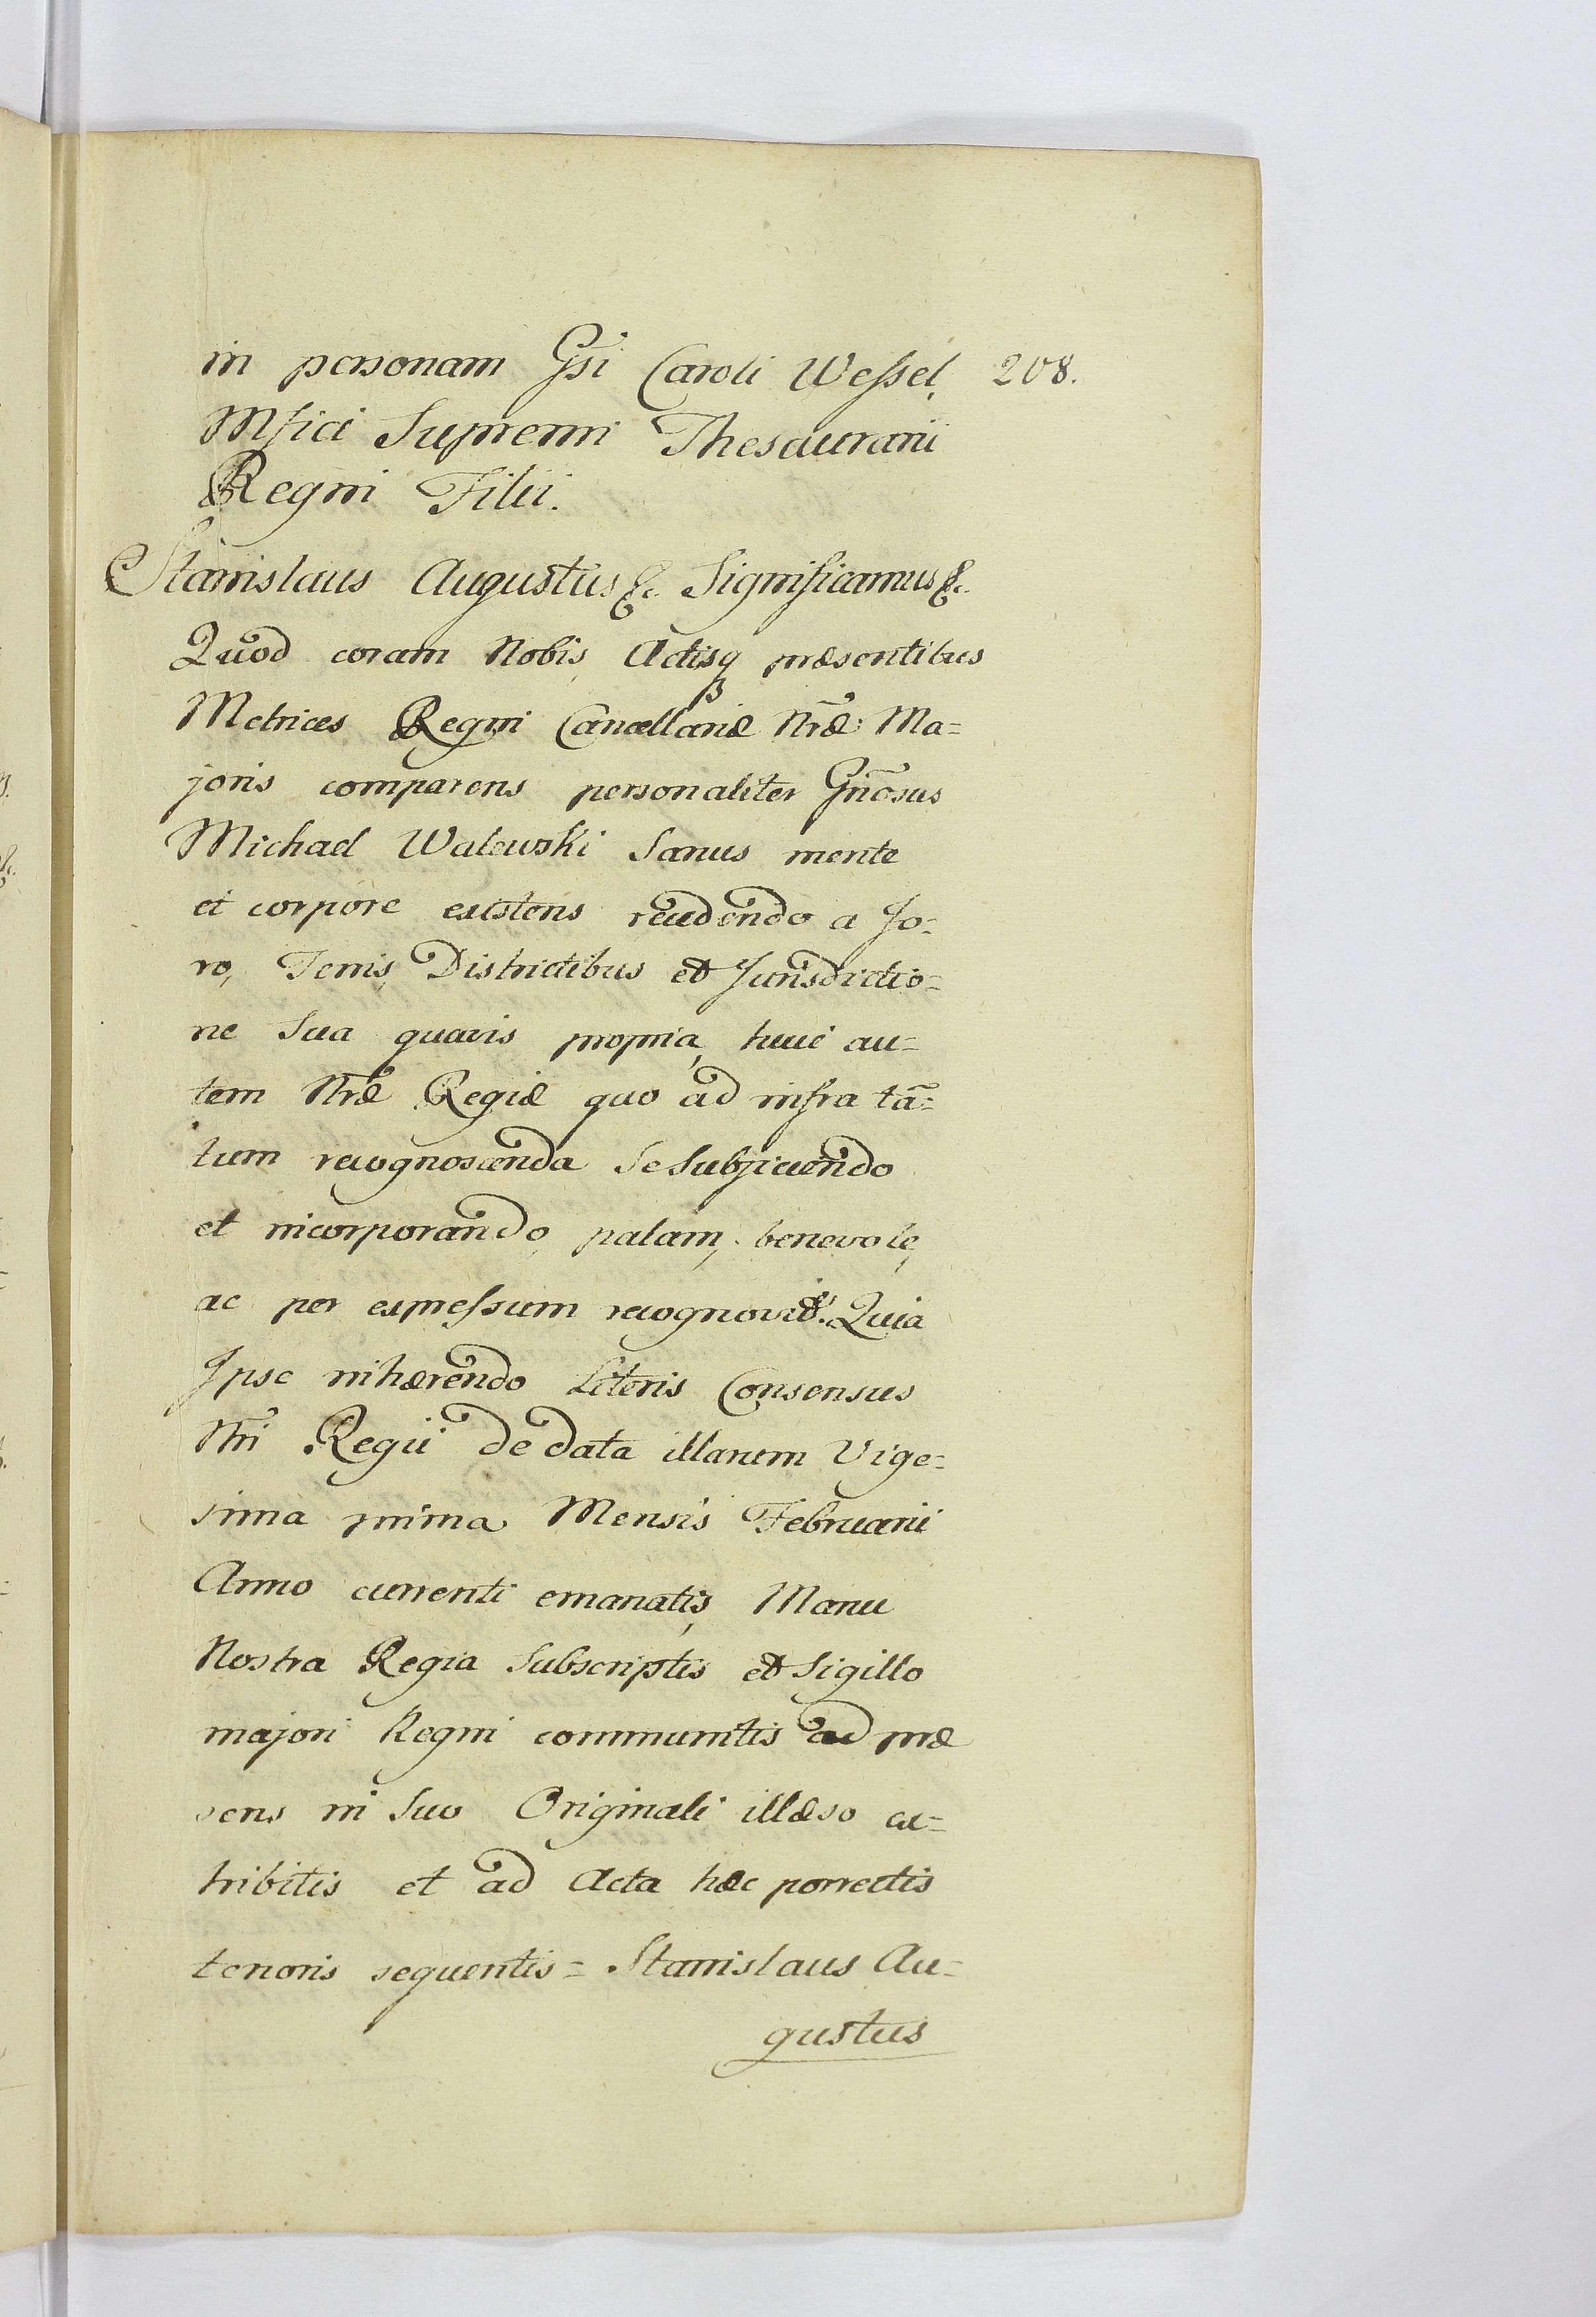 in personam Gsi Caroli Wessel, 208.
Mfici Supremi Thesaurarii
Regni Filii.
Stanislaus Augustus &c. Significamus &c.
Quod coram Nobis, Actisq præsentibus
Metrices Regni Cancellariæ Nræ Ma=
joris comparens personaliter Gnōsus
Michael Walewski Sanus mente
et corpore existens recedendo a Fo=
ro, Terris, Districtibus et Jurisdictio=
ne Sua quavis propria, huic au=
tem Nræ Regiæ quo ad infra tā=
tum recognoscenda Se Subjiciendo
et incorporando, palam, benevole,
ac per expressum recognovit. Quia
Ipse inhærendo Literis Consensus
Nri Regii de data illarum Vige=
sima prima Mensis Februarii
Anno currenti emanatis, Manu
Nostra Regia Subscriptis et Sigillo
majori Regni communitis ad præ
sens in Suo Originali illæso ex=
hibitis et ad Acta hæc porrectis
tenoris sequentis = Stanislaus Au=
gustus